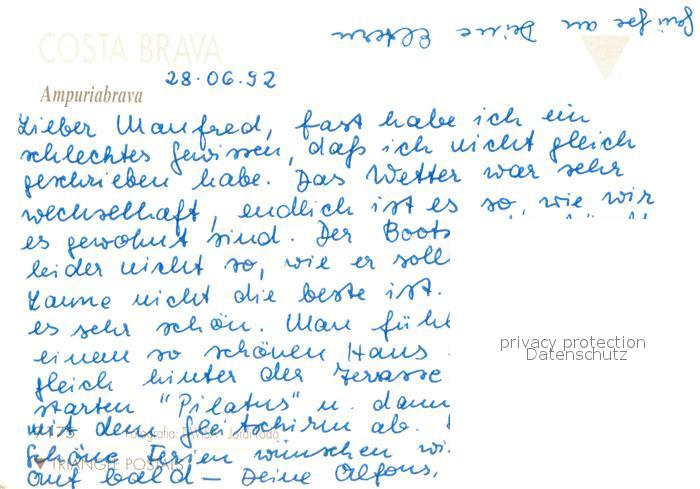 COSTA BRAVA
Grüße an Deine Eltern
28.06.92
Ampuriabrava
Lieber Manfred, fast habe ich ein
schlechtes Gewissen, daß ich nicht gleich
geschrieben habe. Das Wetter war sehr
wechselhaft, endlich ist es so, wie wir
es gewohnt sind. Der Boots
leider nicht so, wie er soll
Laune nicht die beste ist.
es sehr schön. Man fühl
einem so schönen Haus
gleich hinter der Terrasse
starten "Pilatus" u. dann
mit dem Gleitschirm ab.
Schöne Ferien wünschen wi
TRIANGLE POSTALS
Auf bald – Deine Alfons,
privacy protection
Datenschutz